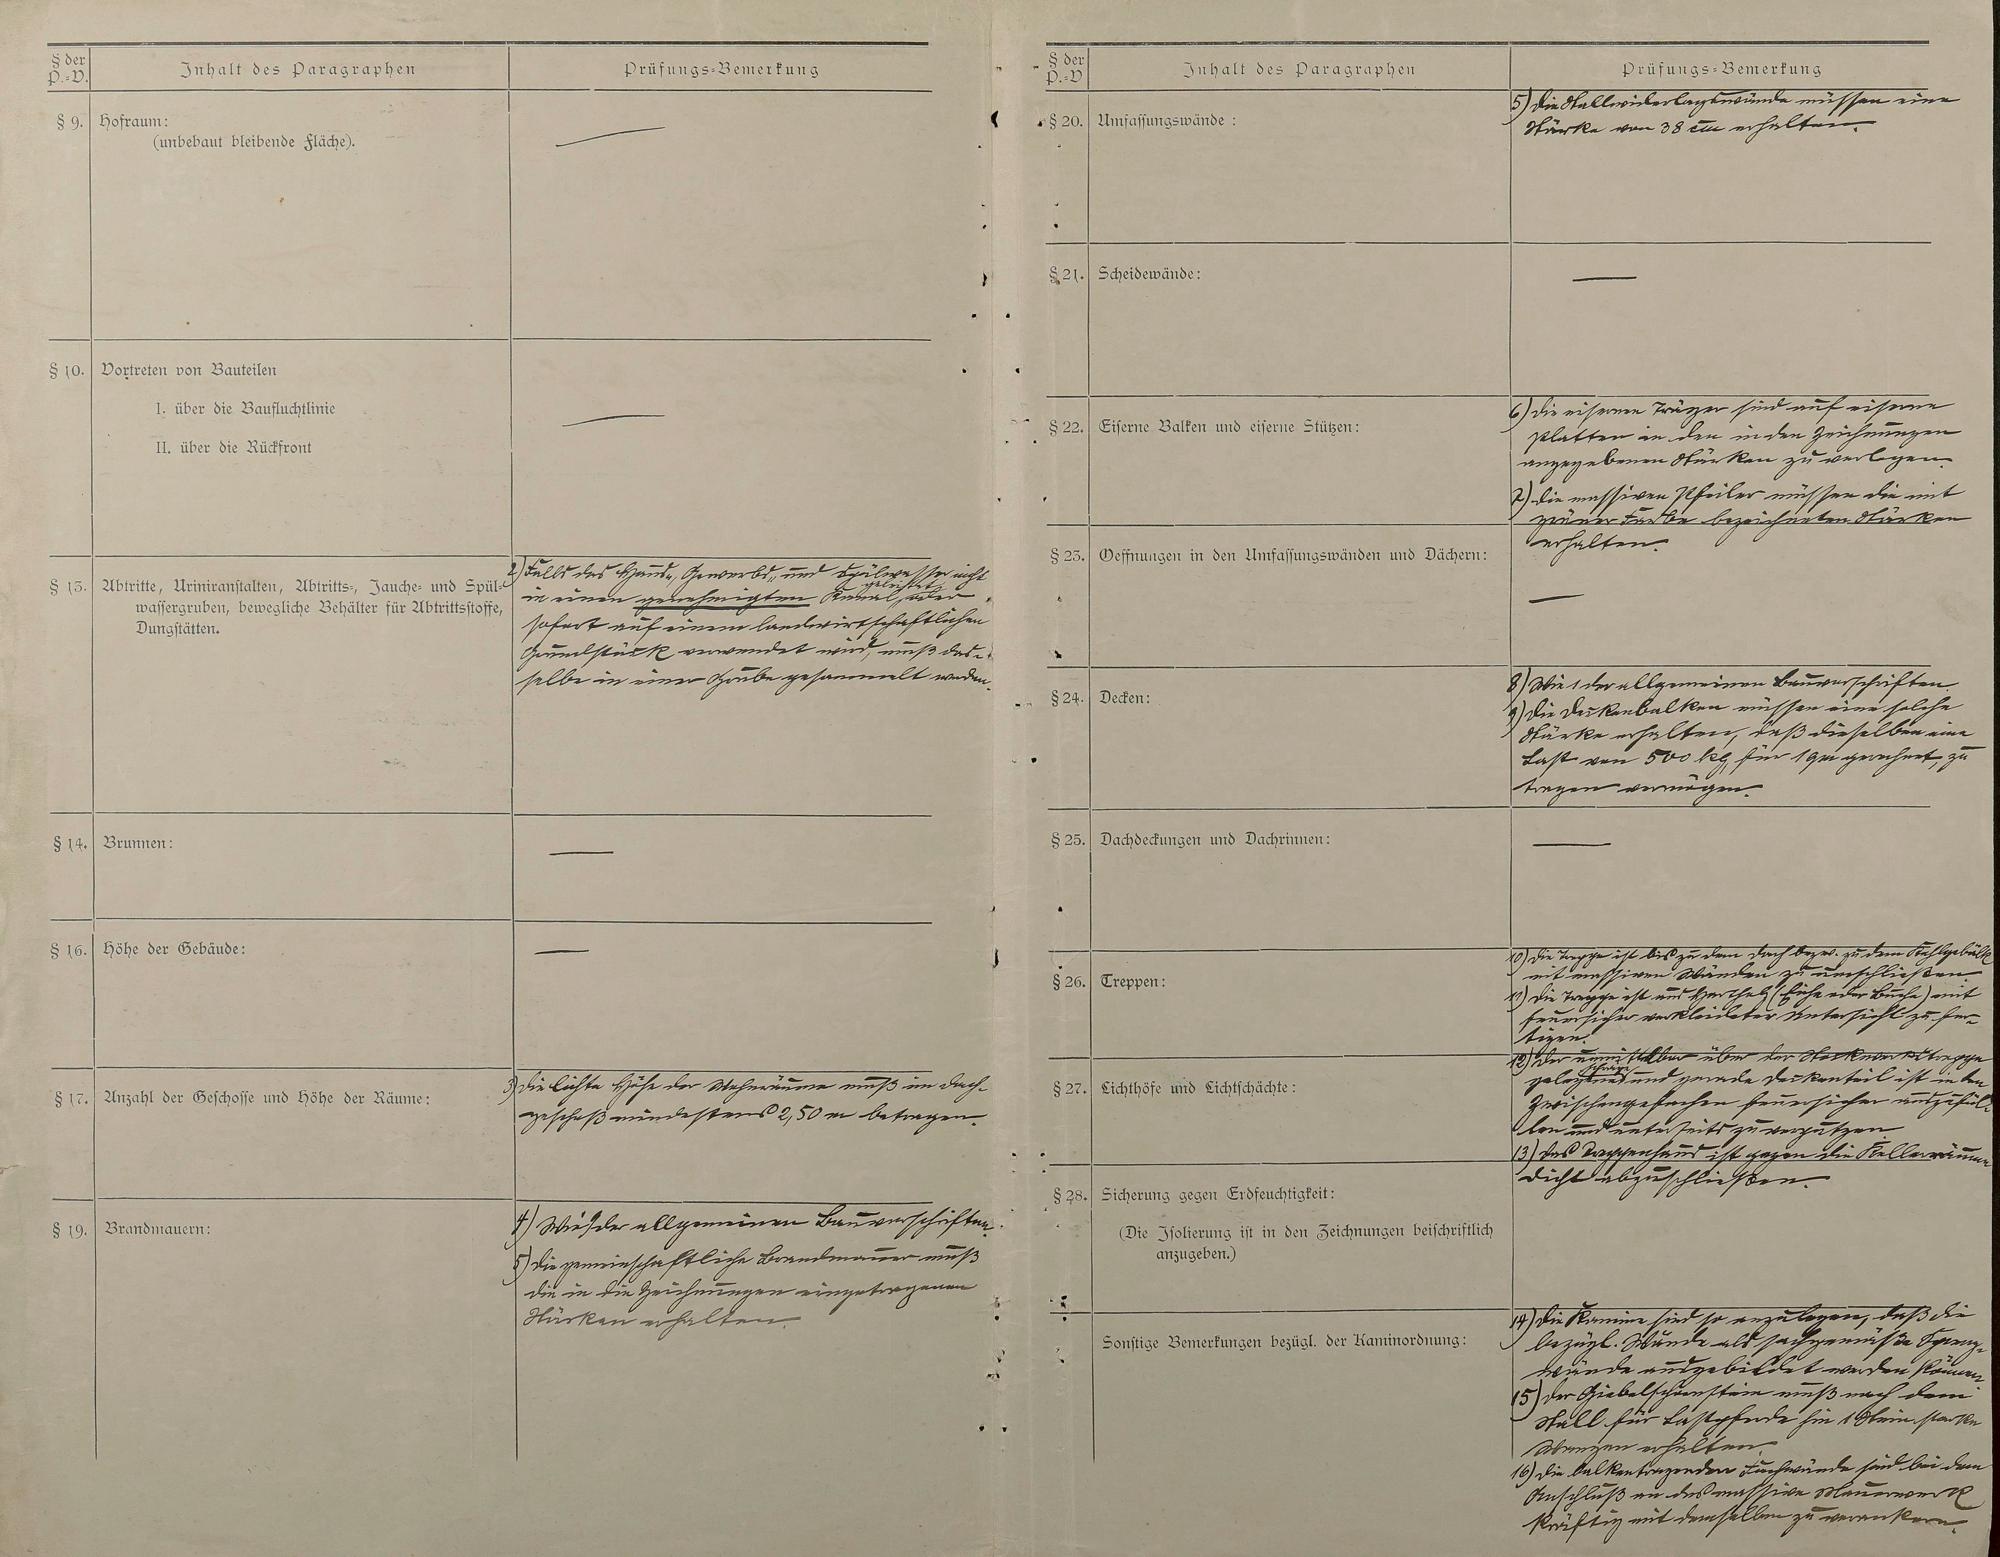 § der
P.-V.
Inhalt des Paragraphen
Prüfungs-Bemerkung
§ 9.
Hofraum:
(unbebaut bleibende Fläche).
§ 10.
Vortreten von Bauteilen
I. über die Baufluchtlinie
II. über die Rückfront
§ 13.
Abtritte, Uriniranstalten, Abtritts-, Jauche- und Spül-
wassergruben, bewegliche Behälter für Abtrittsstoffe,
Dungstätten.
2) Falls das Haus-, Gewerbs- und Spülwasser nicht
in einen genehmigten Kanal geleitet oder
sofort auf einem landwirtschaftlichen
Grundstück verwendet wird, muß das-
selbe in einer Grube gesammelt werden.
§ 14.
Brunnen:
§ 16.
Höhe der Gebäude:
§ 17.
Anzahl der Geschosse und Höhe der Räume:
3) Die lichte Höhe der Wohnräume muß im Dach-
geschoß mindestens 2,50 m betragen.
§ 19.
Brandmauern:
4) Wie der allgemeinen Bauvorschriften.
5) Die gemeinschaftliche Brandmauer muß
die in die Zeichnungen eingetragenen
Stärken erhalten.
§ der
P.-V
Inhalt des Paragraphen
Prüfungs-Bemerkung
§ 20.
Umfassungswände :
5) Die Stallwiderlagswände müssen eine
Stärke von 38 cm erhalten.
§ 21.
Scheidewände:
§ 22.
Eiserne Balken und eiserne Stützen:
6) Die eisernen Träger sind auf eiserne
Platten in den in den Zeichnungen
angegebenen Stärken zu verlegen.
7) Die massiven Pfeiler müssen die mit
grüner Farbe bezeichneten Stärken
erhalten.
§ 23.
Oeffnungen in den Umfassungswänden und Dächern:
§ 24.
Decken:
8) Wie 1 der allgemeinen Bauvorschriften.
9) Die Deckenbalken müssen eine solche
Stärke erhalten, daß dieselben eine
Last von 500 kg, für 1 qm gerechnet, zu
tragen vermögen.
§ 25.
Dachdeckungen und Dachrinnen:
§ 26.
Treppen:
10) Die Treppe ist bis zu dem Dach bezw. zu dem Kehlgebälk
mit massiven Wänden zu umschließen.
11) Die Treppe ist aus Hartholz (Eiche oder Buche) mit
feuersicher verkleideter Untersicht zu fer-
tigen.
12) Der unmittelbar über der Stockwerkstreppe
gelegene schräge und gerade Deckenteil ist in den
Zwischengefachen feuersicher auszufül-
len und unterseits zu verputzen
13) Das Treppenhaus ist gegen die Kellerräume
dicht abzuschließen.
§ 27.
Lichthöfe und Lichtschächte:
§ 28.
Sicherung gegen Erdfeuchtigkeit:
(Die Isolierung ist in den Zeichnungen beischriftlich
anzugeben.)
Sonstige Bemerkungen bezügl. der Kaminordnung:
14) Die Kamine sind so anzulegen, daß die
bezügl. Wände als sachgemäße Spreng-
wände ausgebildet werden können.
15) Der Giebelschornstein muß nach dem
Stall für Lastpferde hin 1 Stein starke
Wangen erhalten.
16) Die balkentragenden Fachwände sind bei dem
Anschluß an das massive Mauerwerk
kräftig mit demselben zu verankern.